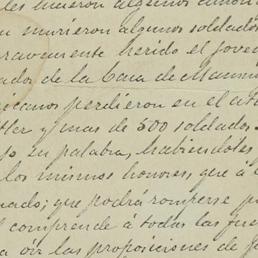 algunos
n murieron algunos soldados
ravemente herido el joven
ador de la Casa de
icanos perdieron en el
y mas de 500 soldados
en palabra, habiendoles
los mismos honores, que á
nado; que podrá romperse
comprende á todas las
a óir las proposiciones de